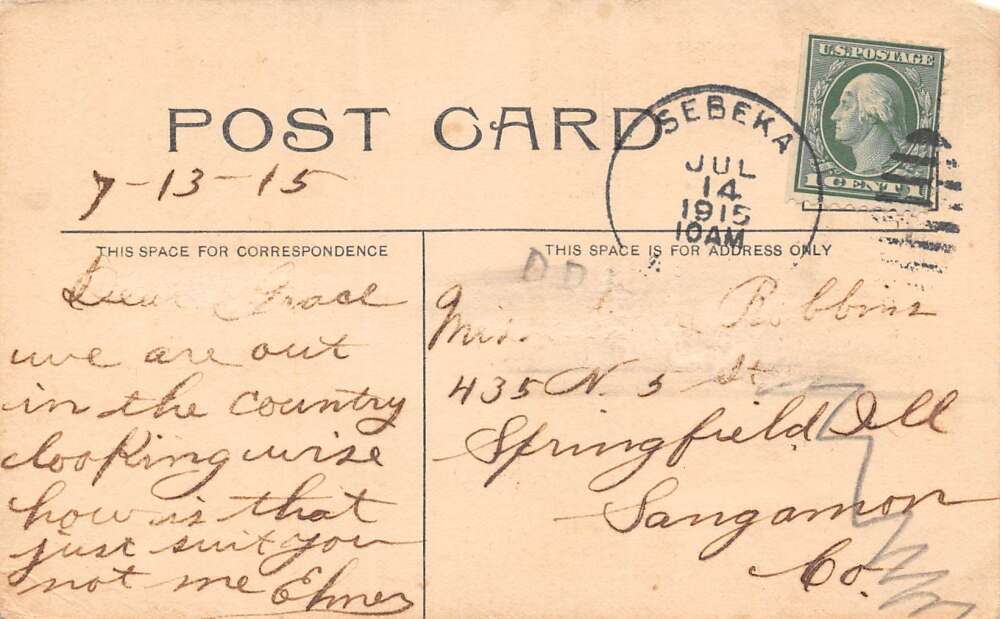 POST CARD
SEBEKA
JUL
14
1915
10AM
U.S. POSTAGE
1 CENT 1
7-13-15
THIS SPACE FOR CORRESPONDENCE
Dear Grace
uve are out
in the country
looking wise
how is that
just suit you
not me Elmer
THIS SPACE IS FOR ADDRESS ONLY
Miss. Robbins
435 N. 5 St
Springfield Ill
Sangamon
Co.